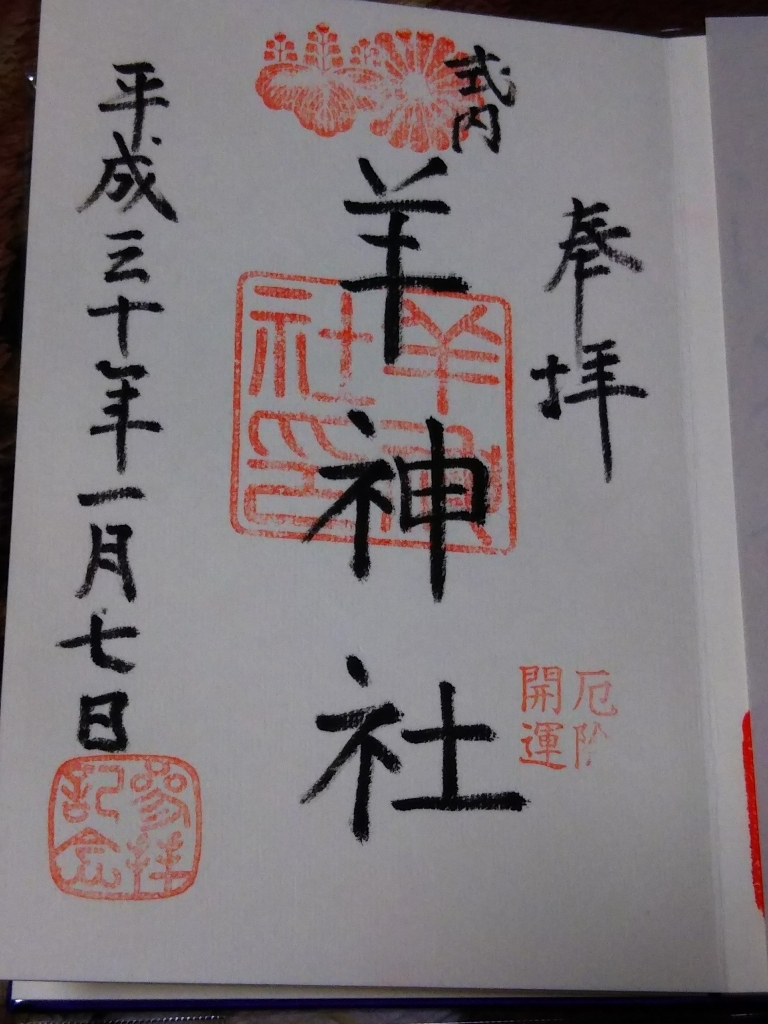 奉拝
式内
羊神社
羊神社印
厄除
開運
平成三十年一月七日
参拝記念